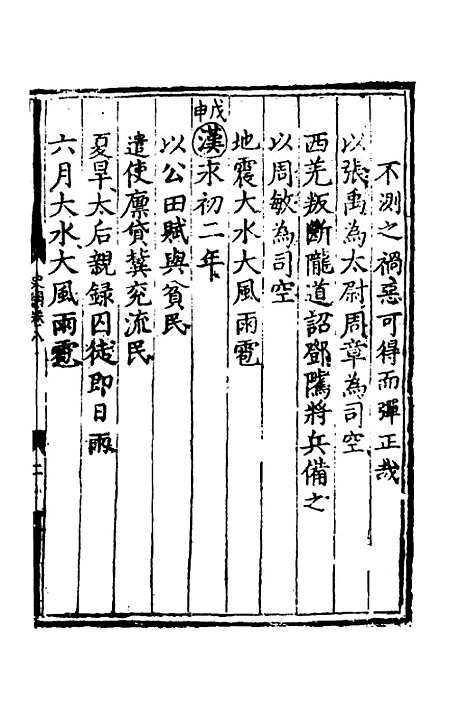 不測之禍惡可得而彈正哉
以張禹為太尉周章為司空
西羌叛斷隴道詔鄧隲將兵備之
以周敏為司空
地震大水大風雨雹
戊申
漢永初二年
以公田賦與貧民
遣使廪貸兾兖流民
夏旱太后親録囚徒即日雨
六月大水大風雨雹
卷八
二